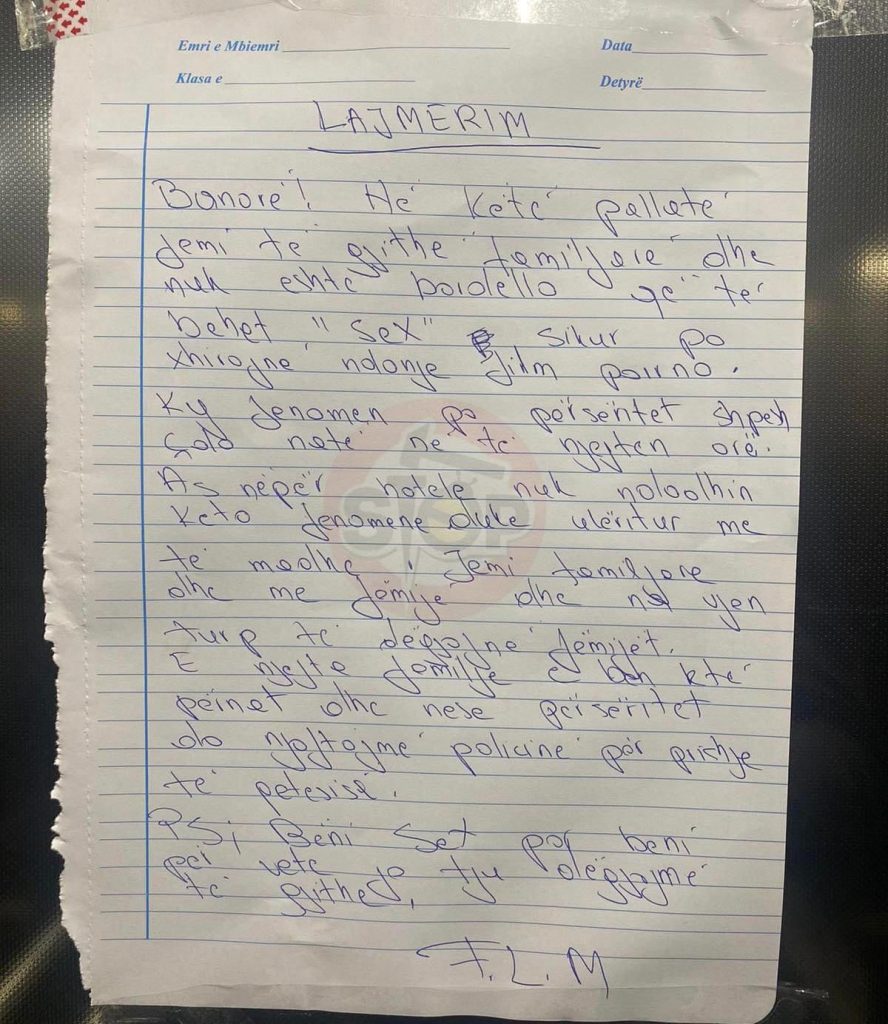 Emri e Mbiemri Data
Klasa e Detyrë
LAJMERIM
Banorë! Në këtë pallatë
jemi të gjithë familjarë dhe
nuk eshtë bordello që të
behet "sex" sikur po
xhirojnë ndonje film porno.
Ky fenomen po përsëritet shpesh
çdo natë ne të njejten orë.
As nëpër hotele nuk ndodhin
Keto fenomene duke ulëritur me
të madhe. Jemi familjare
dhe me fëmijë dhe na vjen
turp të dëgjojnë fëmijët.
E njejte familje e ben ktë
përnat dhe nese përsëritet
do njoftojmë policinë për prishje
të qetesisë.
PS; Bëni Set por beni
për vete jo tju dëgjojmë
të gjithe,
F.L.M
STOP